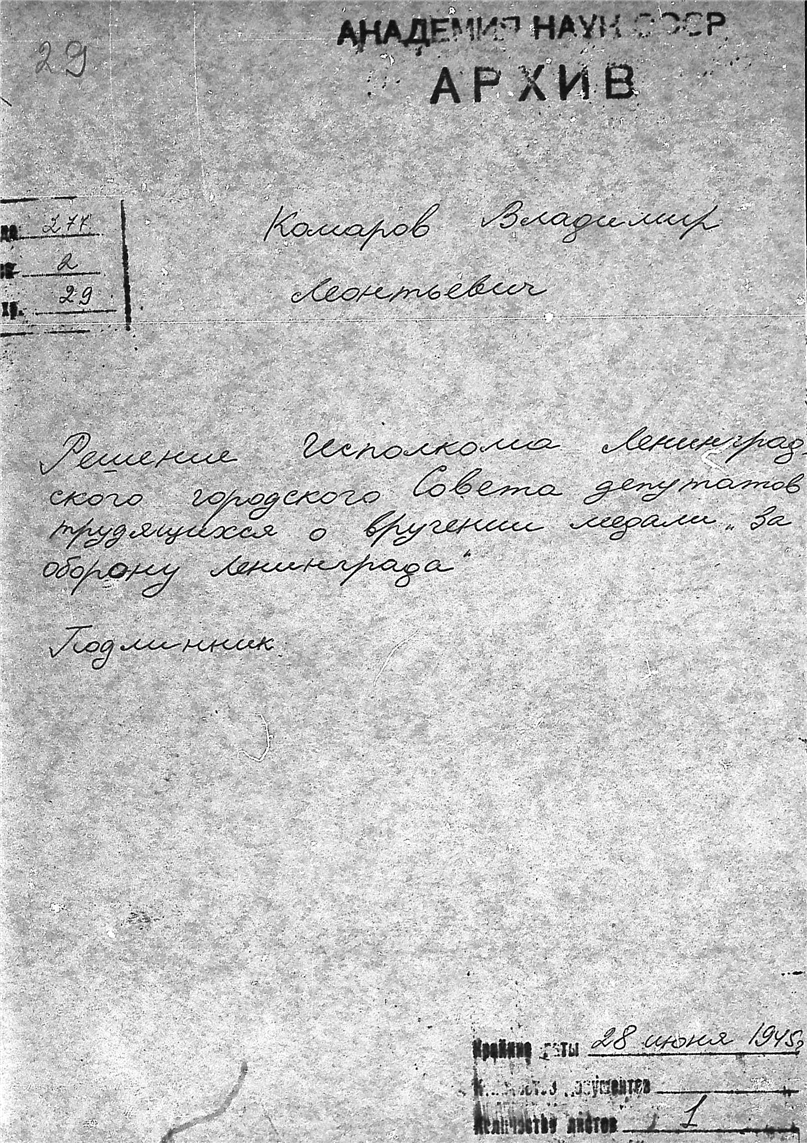 29
АКАДЕМИЯ НАУК СССР
АРХИВ
277
2
хр. 29
Комаров Владимир
Леонтьевич
Решение Исполкома Ленинград-
ского городского Совета депутатов
трудящихся о вручении медали „За
оборону Ленинграда“
Подлинник.
Крайние даты 28 июня 1945г
Количество документов
Количество листов 1